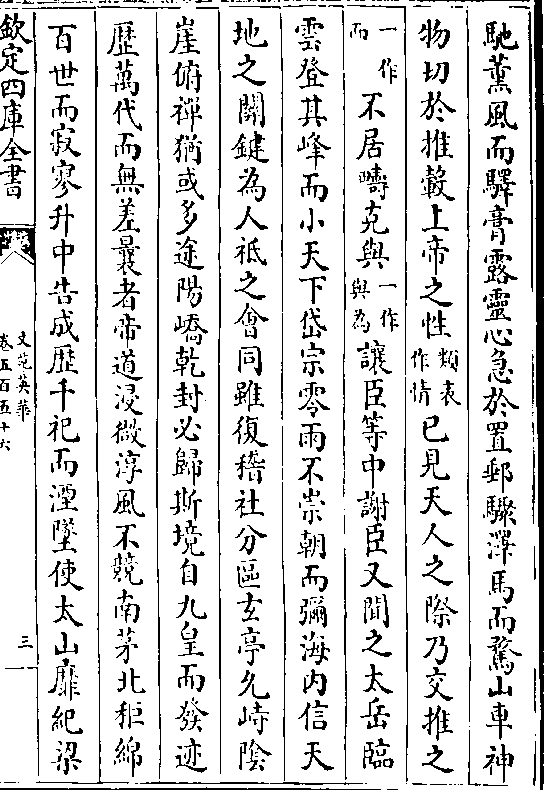 馳薫風而驛膏露靈心急於置郵驟澤馬而騖山車神
物切於推轂上帝之性類表作情已見天人之際乃交推之
一作而不居疇克與一作與為讓臣等中謝臣又聞之太岳臨
雲登其峰而小天下岱宗零雨不崇朝而彌海内信天
地之關鍵為人祇之會同雖復稽社分區玄亭久峙陰
崖俯禪猶或多途陽嶠乾封必歸斯境自九皇而發迹
歴萬代而無差曩者帝道浸微淳風不競南茅北秬綿
百世而寂寥升中告成歴千祀而湮墜使太山靡紀梁
欽定四庫全書
文苑英華
卷五百五十六
三